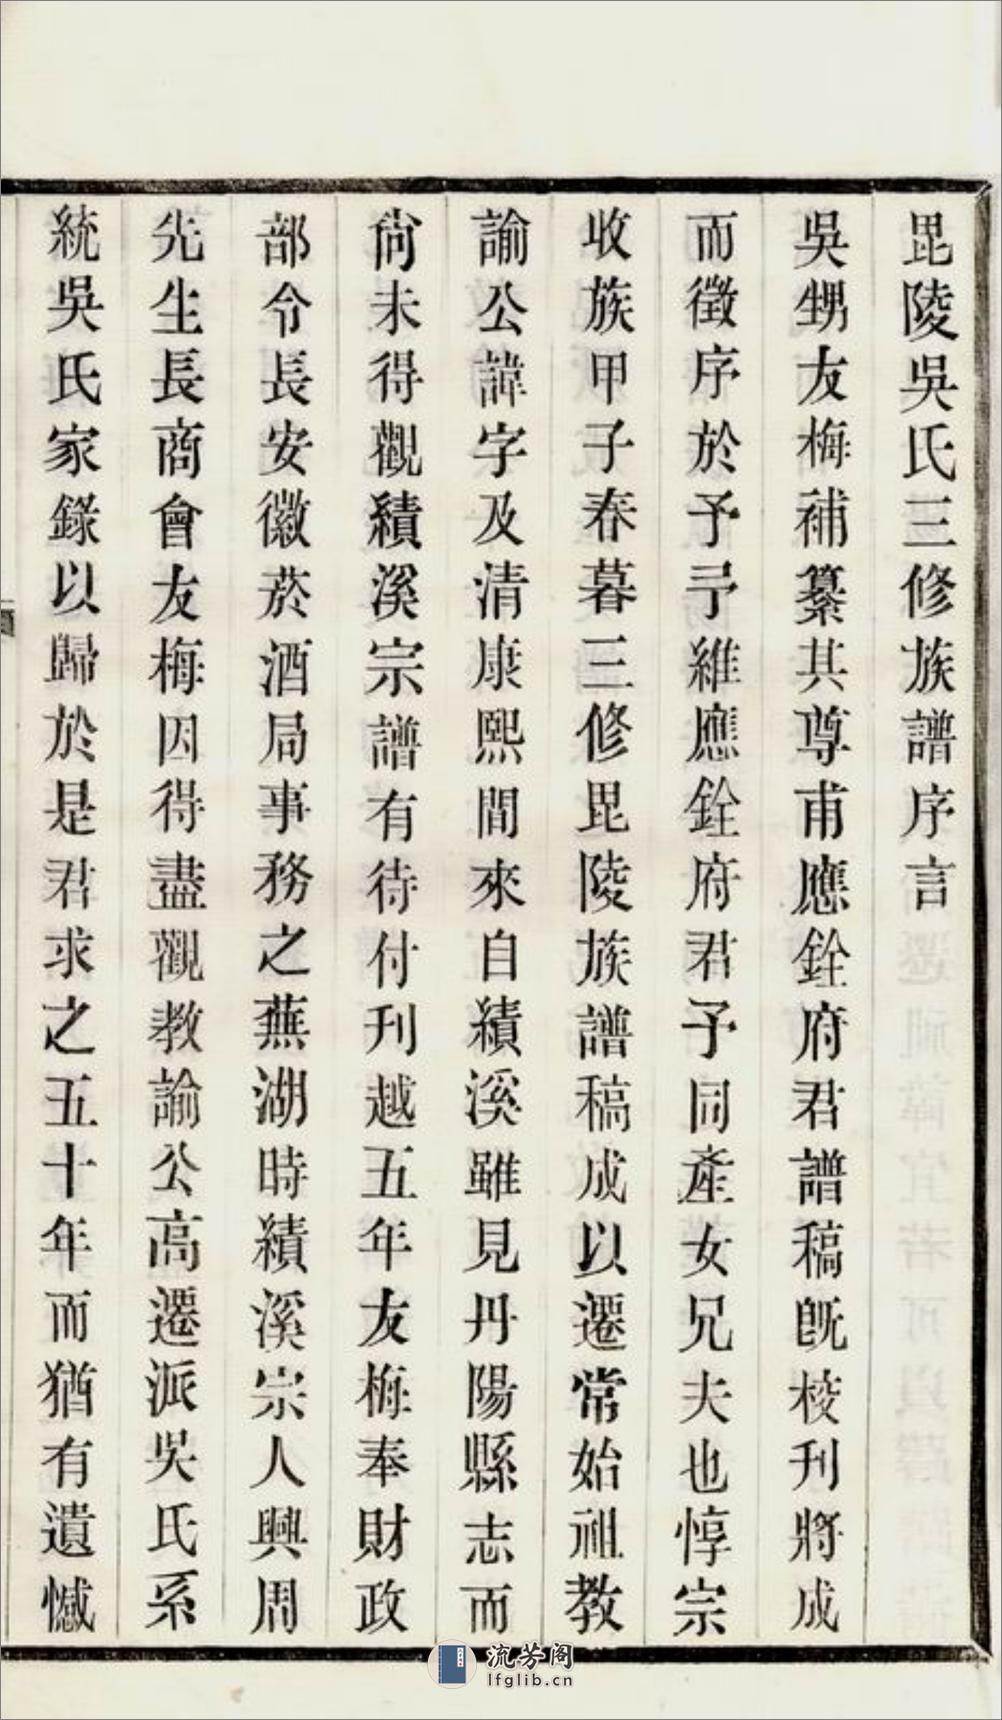 毘陵吳氏三修族譜序言
吳甥友梅補纂其尊甫應銓府君譜稿旣校刊將成
而徵序於予予維應銓府君予同產女兄夫也惇宗
收族甲子春暮三修毘陵族譜稿成以遷常始祖教
諭公諱字及清康熙間來自績溪雖見丹陽縣志而
尙未得觀績溪宗譜有待付刊越五年友梅奉財政
部令長安徽菸酒局事務之蕪湖時績溪宗人興周
先生長商會友梅因得盡觀教諭公高遷派吳氏系
統吳氏家錄以歸於是君求之五十年而猶有遺憾
流芳阁
lfglib.cn